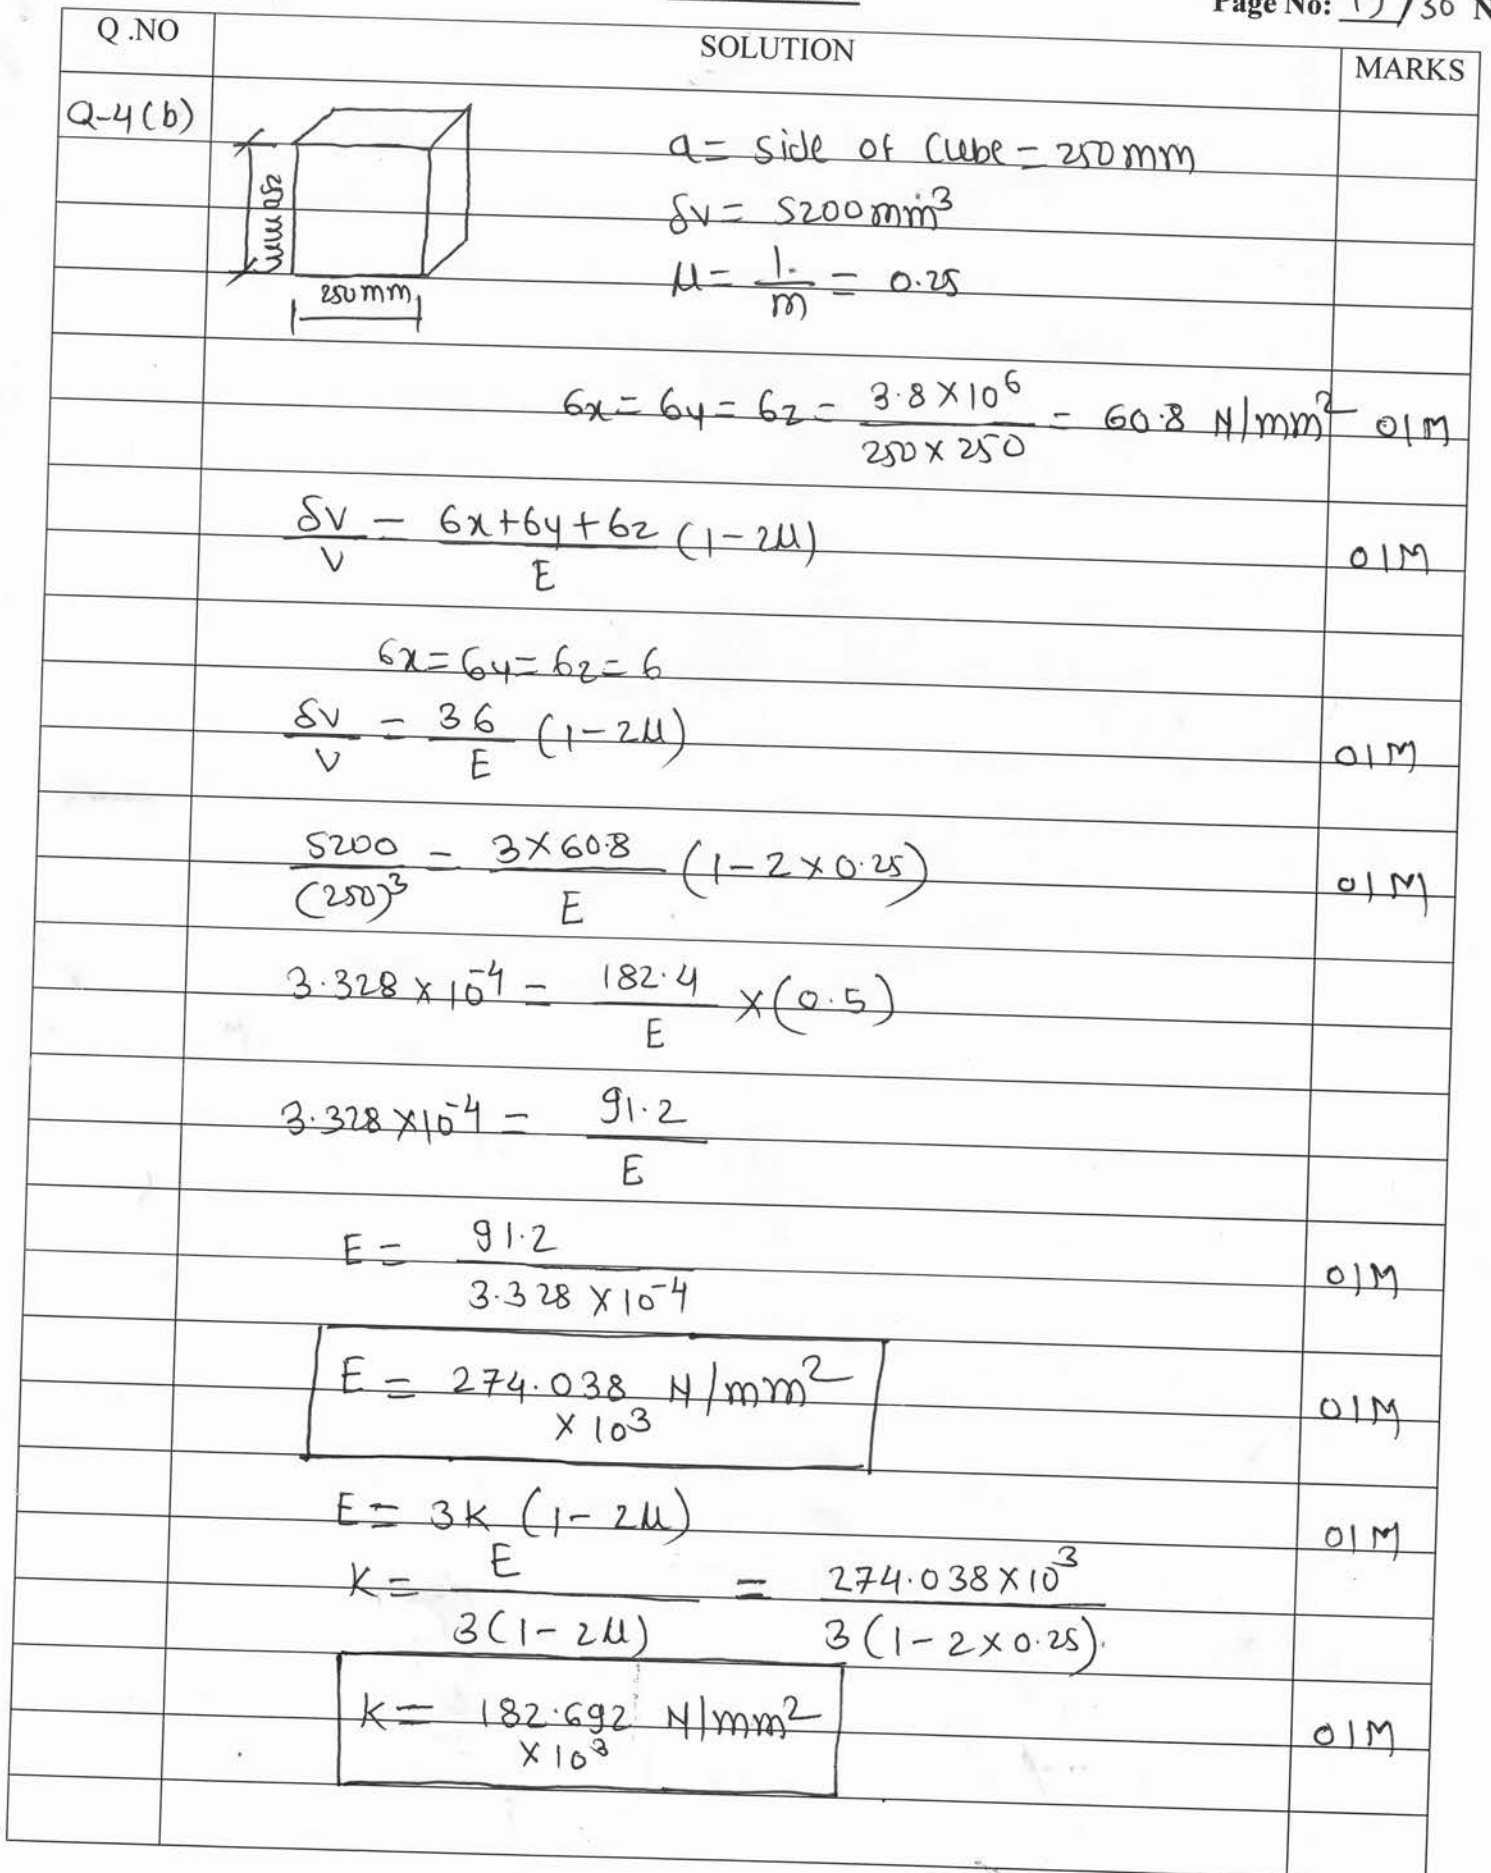 Page No: 15/30 N
Q .NO SOLUTION MARKS
Q-4(b)
a = side of Cube = 250mm
δv = 5200mm³
μ = 1/m = 0.25
250mm
250mm
6x = 6y = 6z = 3.8×10⁶ / 250×250 = 60.8 N/mm² 01M
δv/v = 6x+6y+6z / E (1-2μ) 01M
6x = 6y = 6z = 6
δv/v = 36/E (1-2μ) 01M
5200/(250)³ = 3×60.8/E (1-2×0.25) 01M
3.328×10⁻⁴ = 182.4/E ×(0.5)
3.328×10⁻⁴ = 91.2/E
E = 91.2 / 3.328×10⁻⁴ 01M
E = 274.038 N/mm² 01M
×10³
E = 3K (1-2μ) 01M
K = E / 3(1-2μ) = 274.038×10³ / 3(1-2×0.25)
K = 182.692 N/mm² 01M
×10³